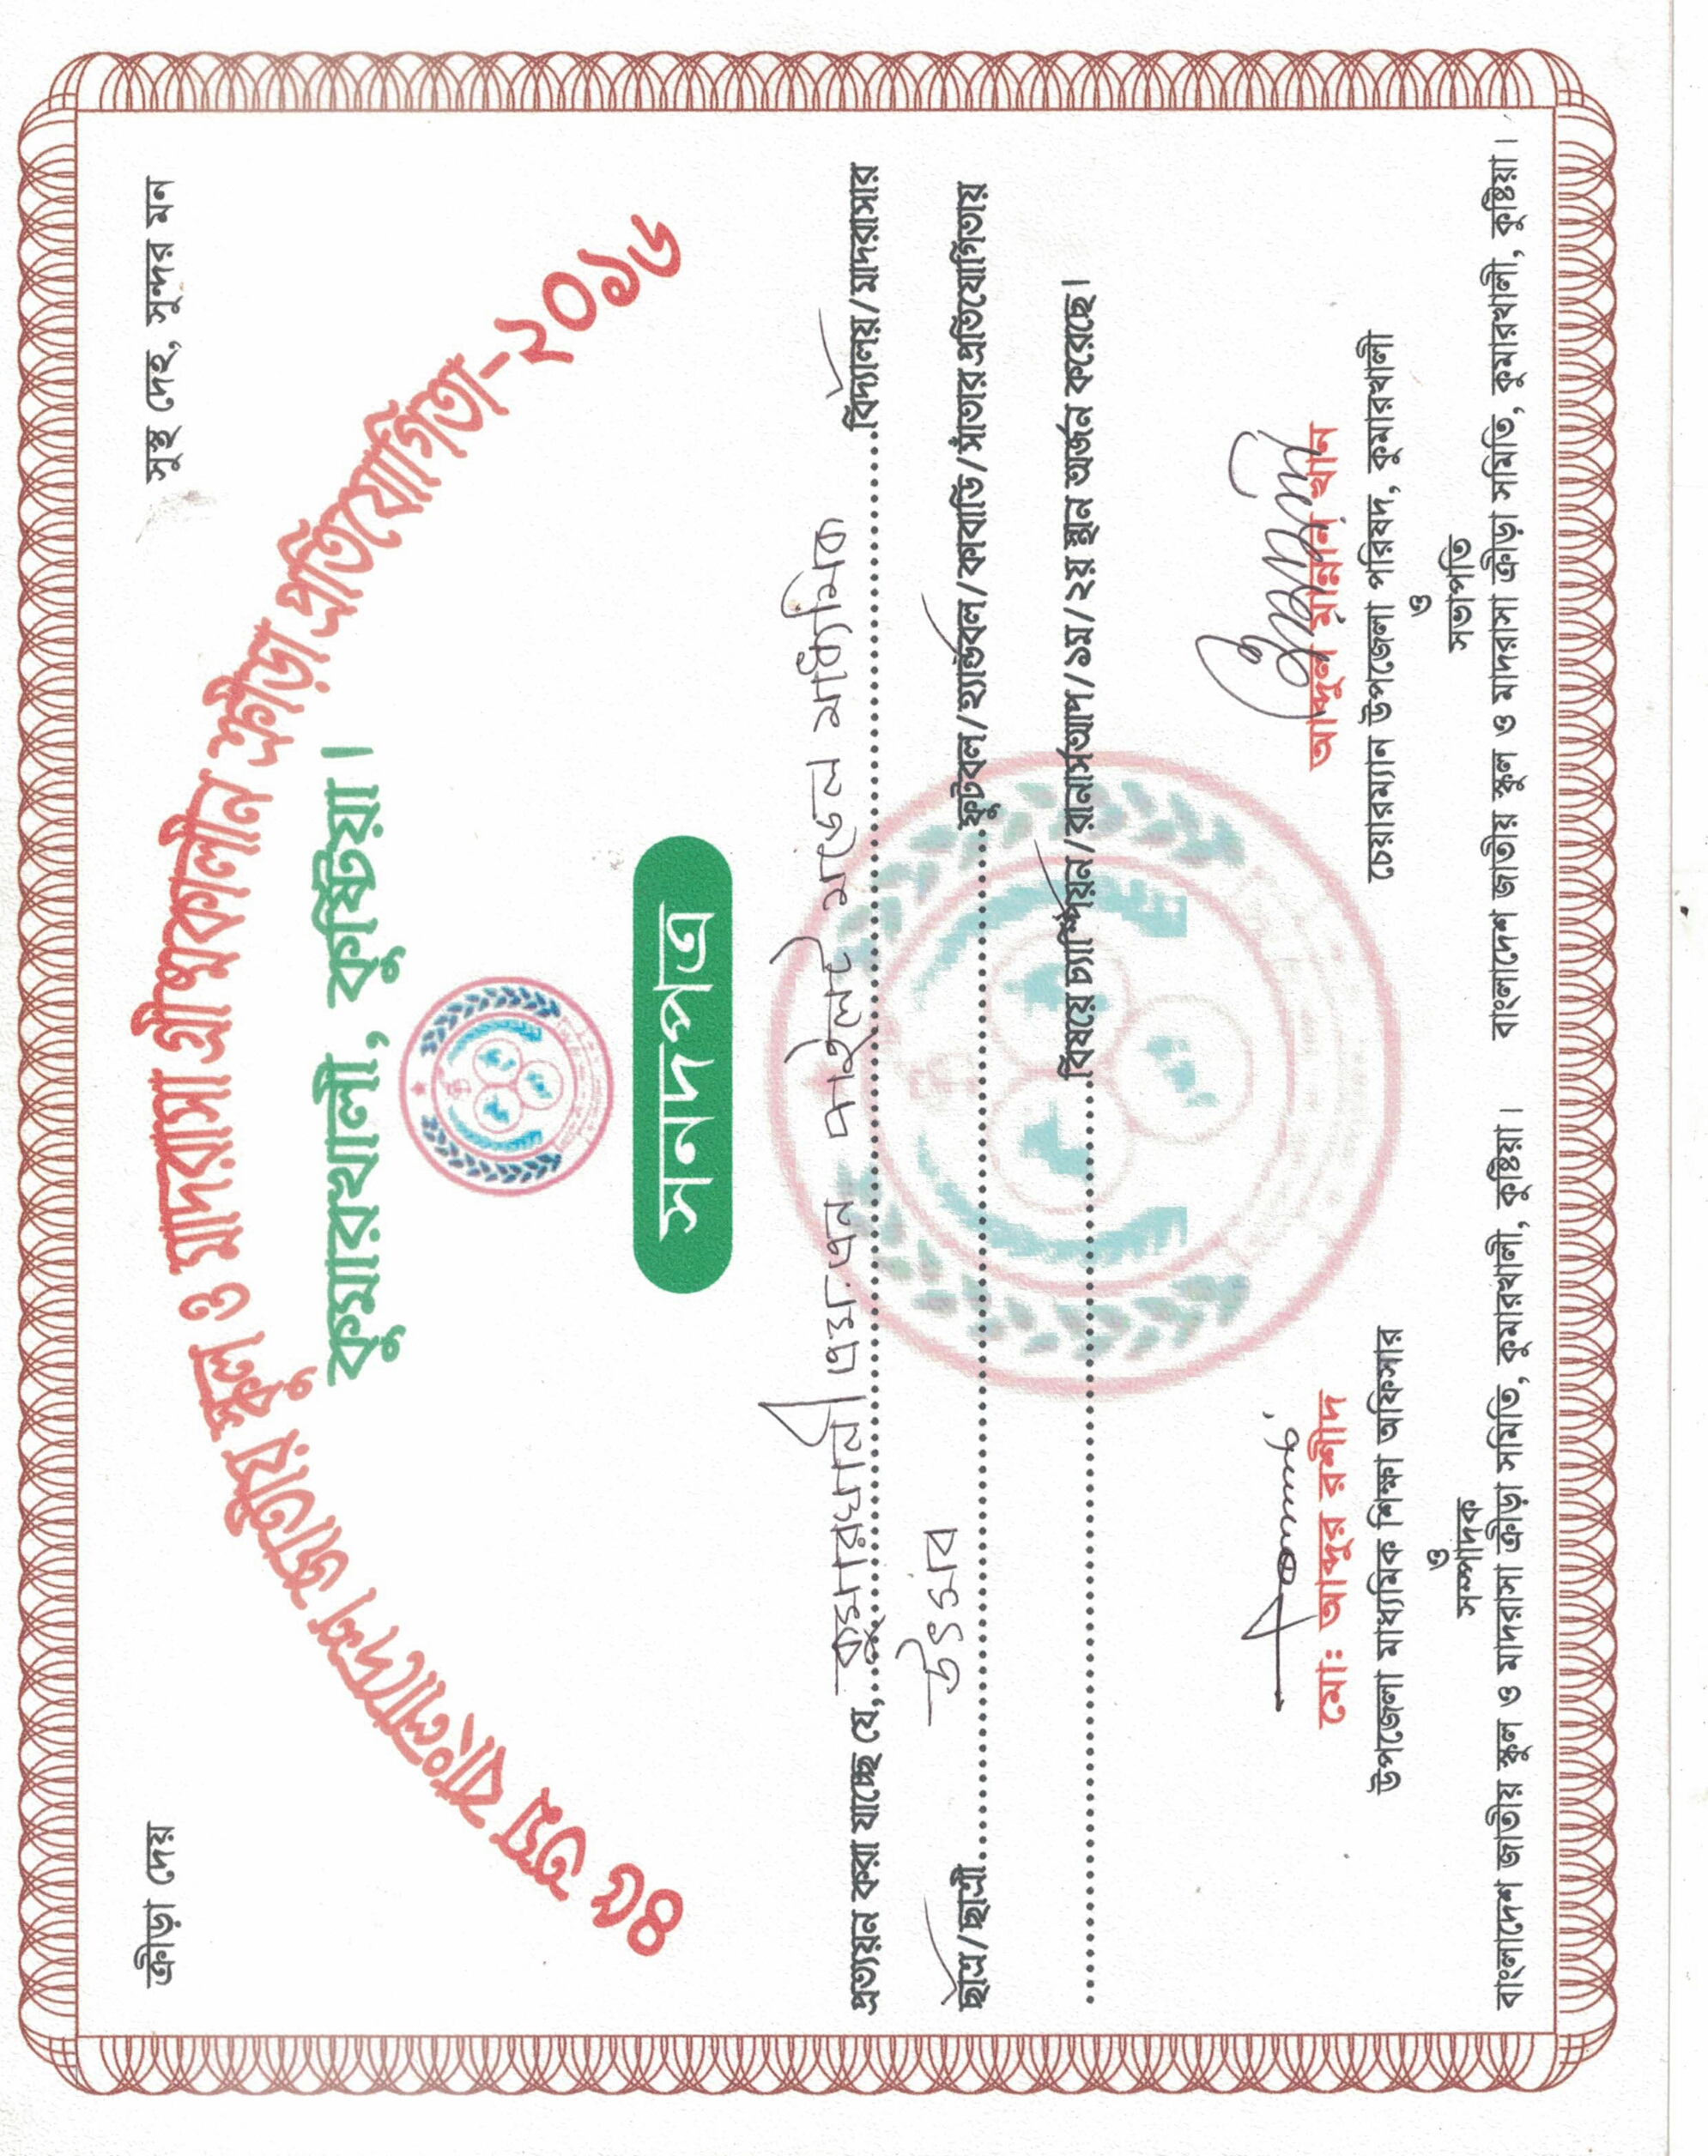 ক্রীড়া দেয়
সুস্থ দেহ, সুন্দর মন
৪৫ তম বাংলাদেশ জাতীয় স্কুল ও মাদরাসা গ্রীষ্মকালীন ক্রীড়া প্রতিযোগিতা-২০১৬
কুমারখালী, কুষ্টিয়া।
সনদপত্র
প্রত্যয়ন করা যাচ্ছে যে, কুমারখালী এম.এন পাইলট মডেল মাধ্যমিক বিদ্যালয়/মাদরাসার
ছাত্র/ছাত্রী উৎসব ফুটবল/হ্যান্ডবল/কাবাডি/সাঁতার প্রতিযোগিতায়
বিষয়ে চ্যাম্পিয়ন/রানার্সআপ/১ম/২য় স্থান অর্জন করেছে।
মো: আব্দুর রশীদ
উপজেলা মাধ্যমিক শিক্ষা অফিসার
ও
সম্পাদক
বাংলাদেশ জাতীয় স্কুল ও মাদরাসা ক্রীড়া সমিতি, কুমারখালী, কুষ্টিয়া।
আব্দুল মান্নান খান
চেয়ারম্যান উপজেলা পরিষদ, কুমারখালী
ও
সভাপতি
বাংলাদেশ জাতীয় স্কুল ও মাদরাসা ক্রীড়া সমিতি, কুমারখালী, কুষ্টিয়া।